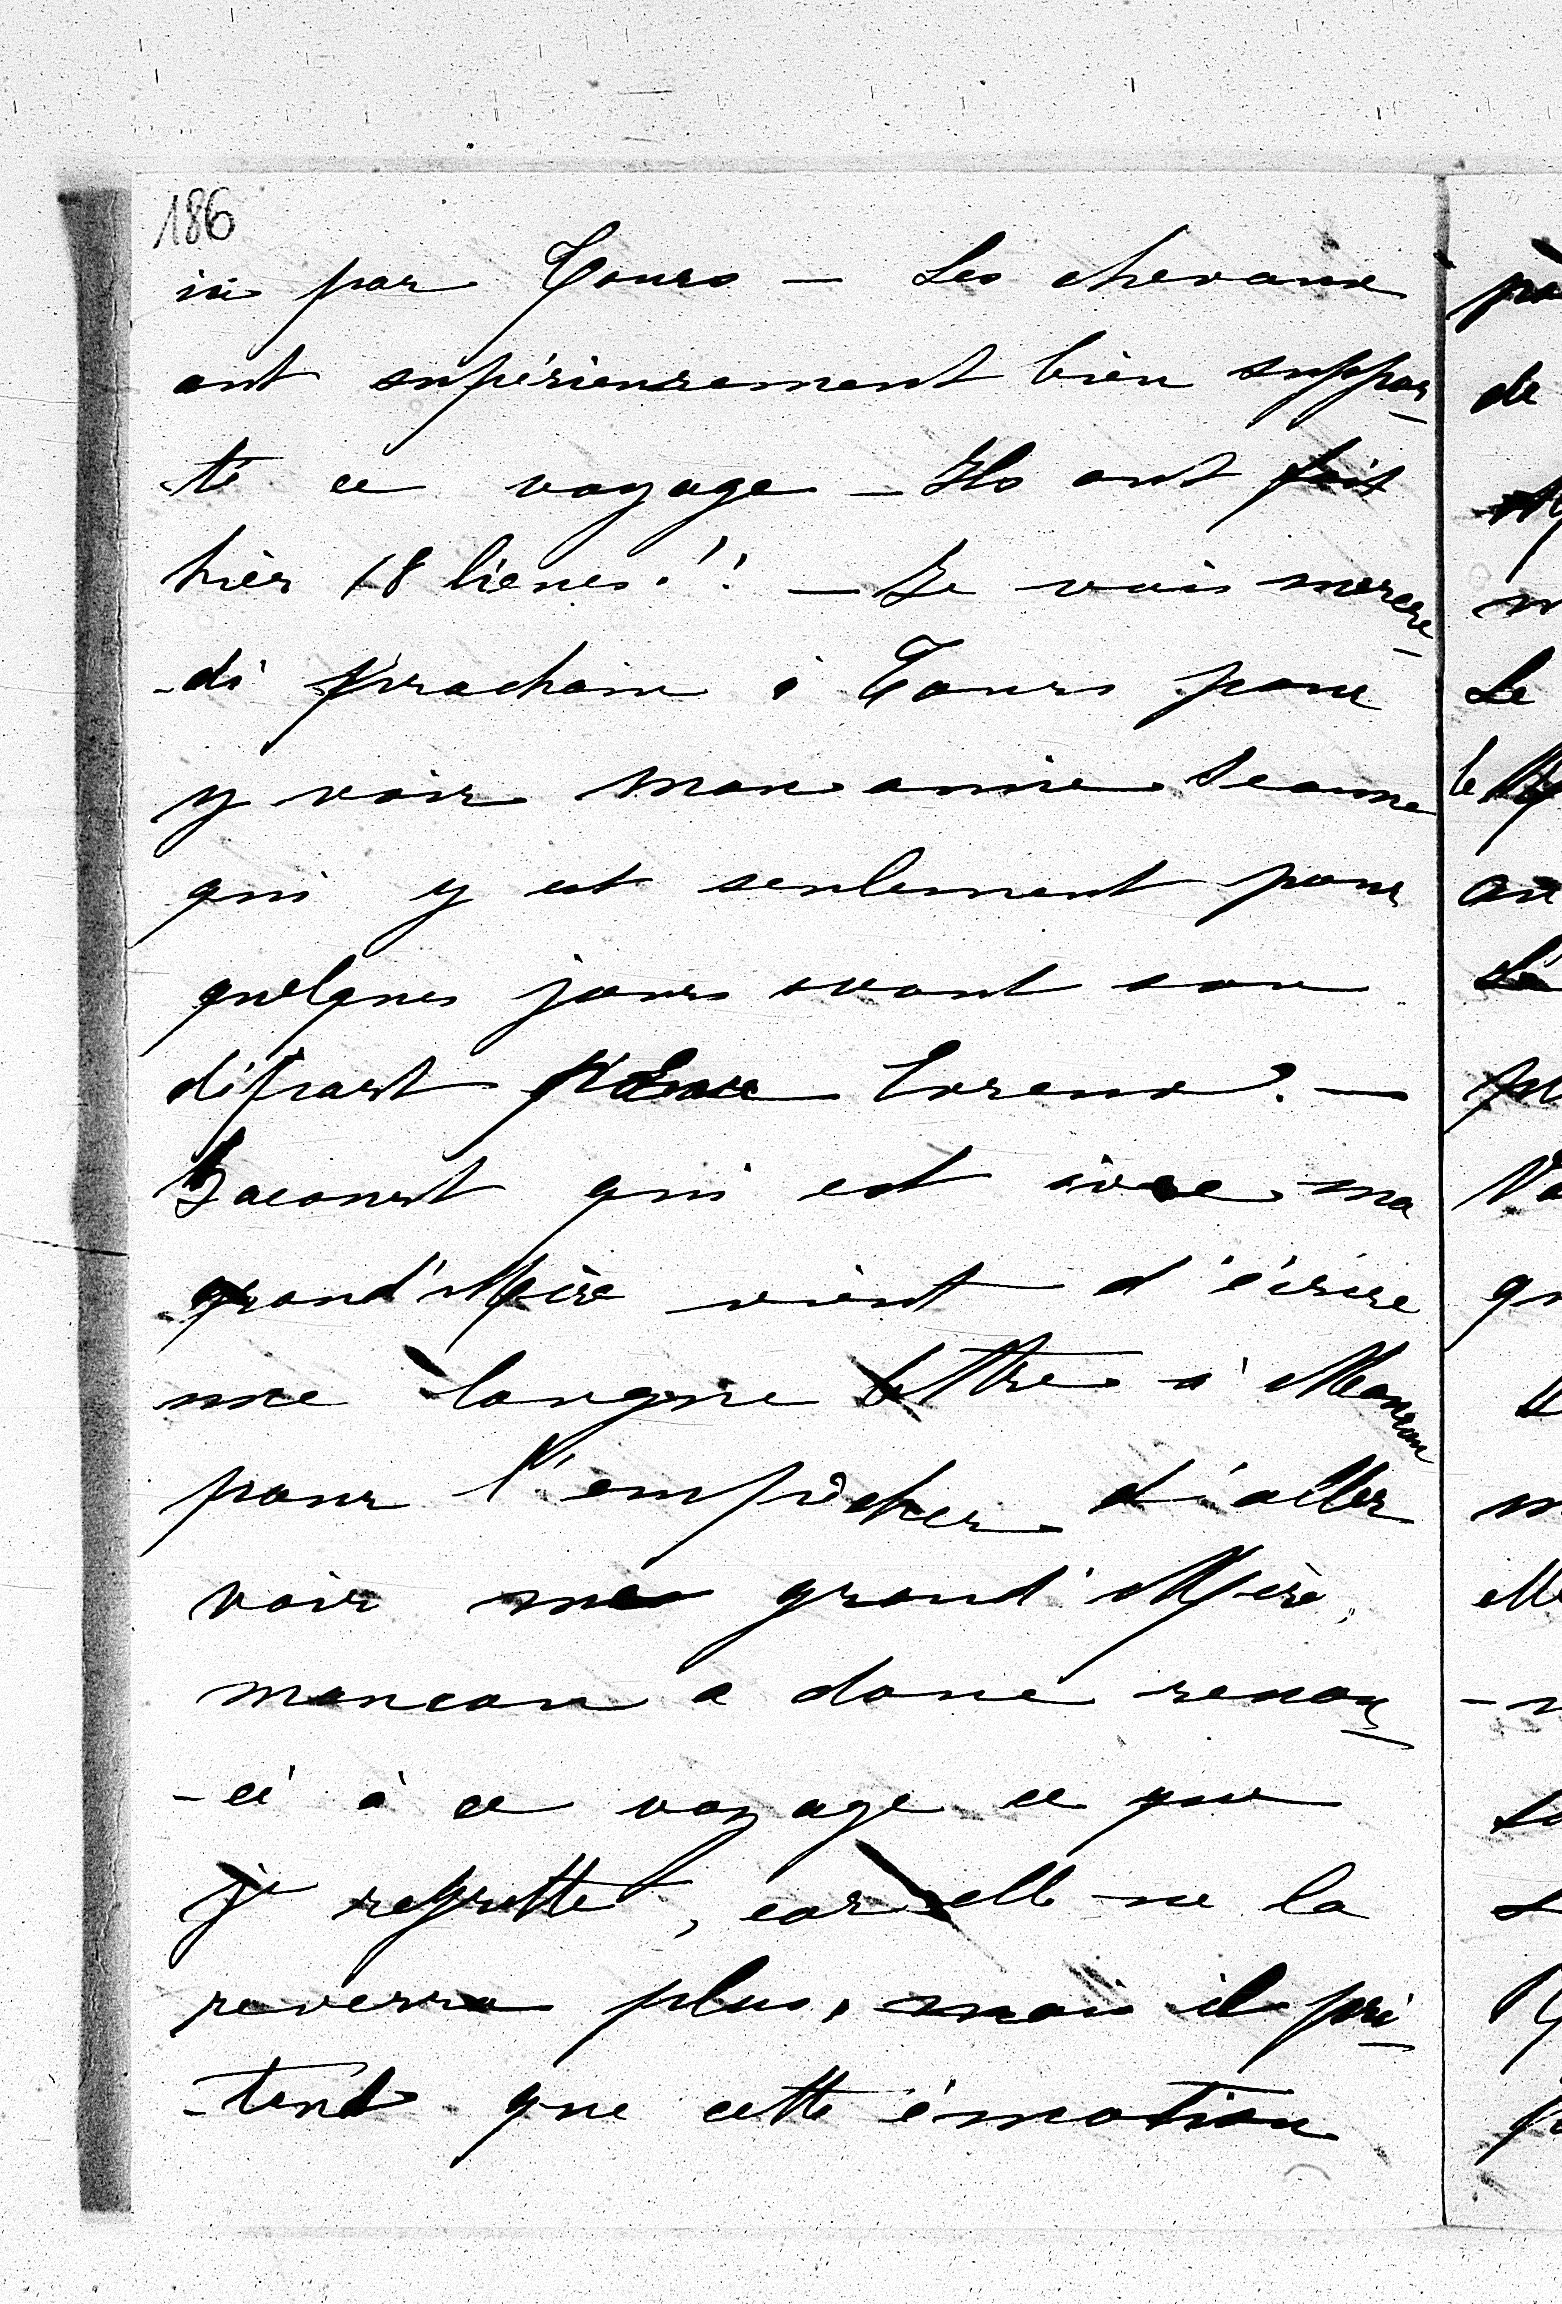 186
ici par Tours — Les chevaux
ont supérieurement bien suppor-
-té ce voyage — Ils ont fait
hier 18 lieues !! — Je vais mercre-
-di prochain à Tours pour
y voir mon amie Jeanne
qui y est seulement pour
quelques jours avant son
départ pour
qui est avec ma
grand'Mère vient d'écrire
une longue lettre à Maman
pour l'empêcher d'aller
voir ma grand'Mère,
maman a donc renon-
-cé à ce voyage ce que
je regrette, car elle ne la
reverra plus, mais il pré-
-tend que cette émotion